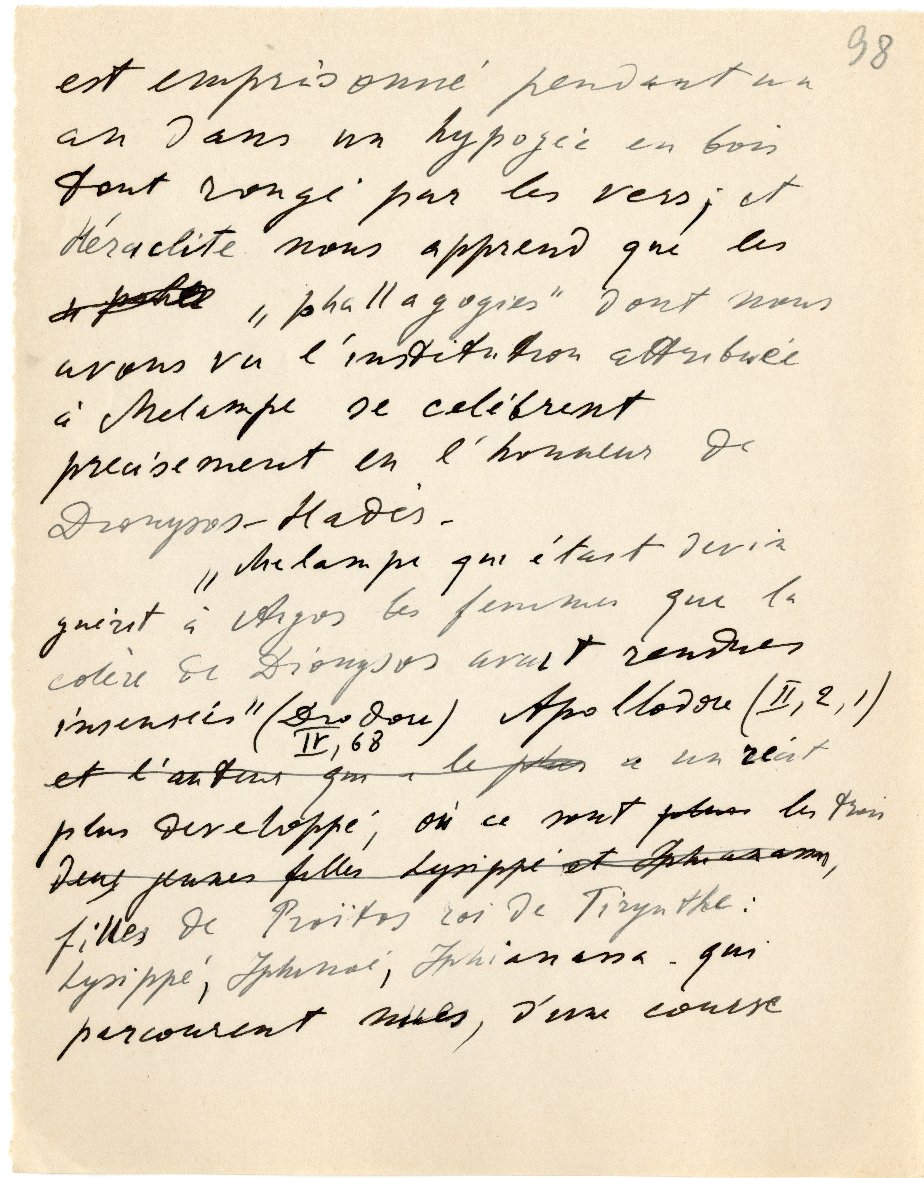 98
est emprisonné pendant un
an dans un hypogée en bois
tout rongé par les vers; et
Héraclite nous apprend que les
„phallagogies" dont nous
avons vu l'institution attribuée
à Melampe se celébrent
precisement en l'honneur de
Dionysos-Hadès.
„Melampe qui était devin
guérit à Argos les femmes que la
colère de Dionysos avait rendues
insensées" (Diodore) Apollodore (II, 2, 1)
IV, 68
et l'auteur qui a le plus a un récit
plus developpé, où ce sont plus les trois
deux jeunes filles Lysippé et Iphianassa,
filles de Proitos roi de Tirynthe:
Lysippé, Iphinoé, Iphianassa - qui
parcourent nues, d'une course